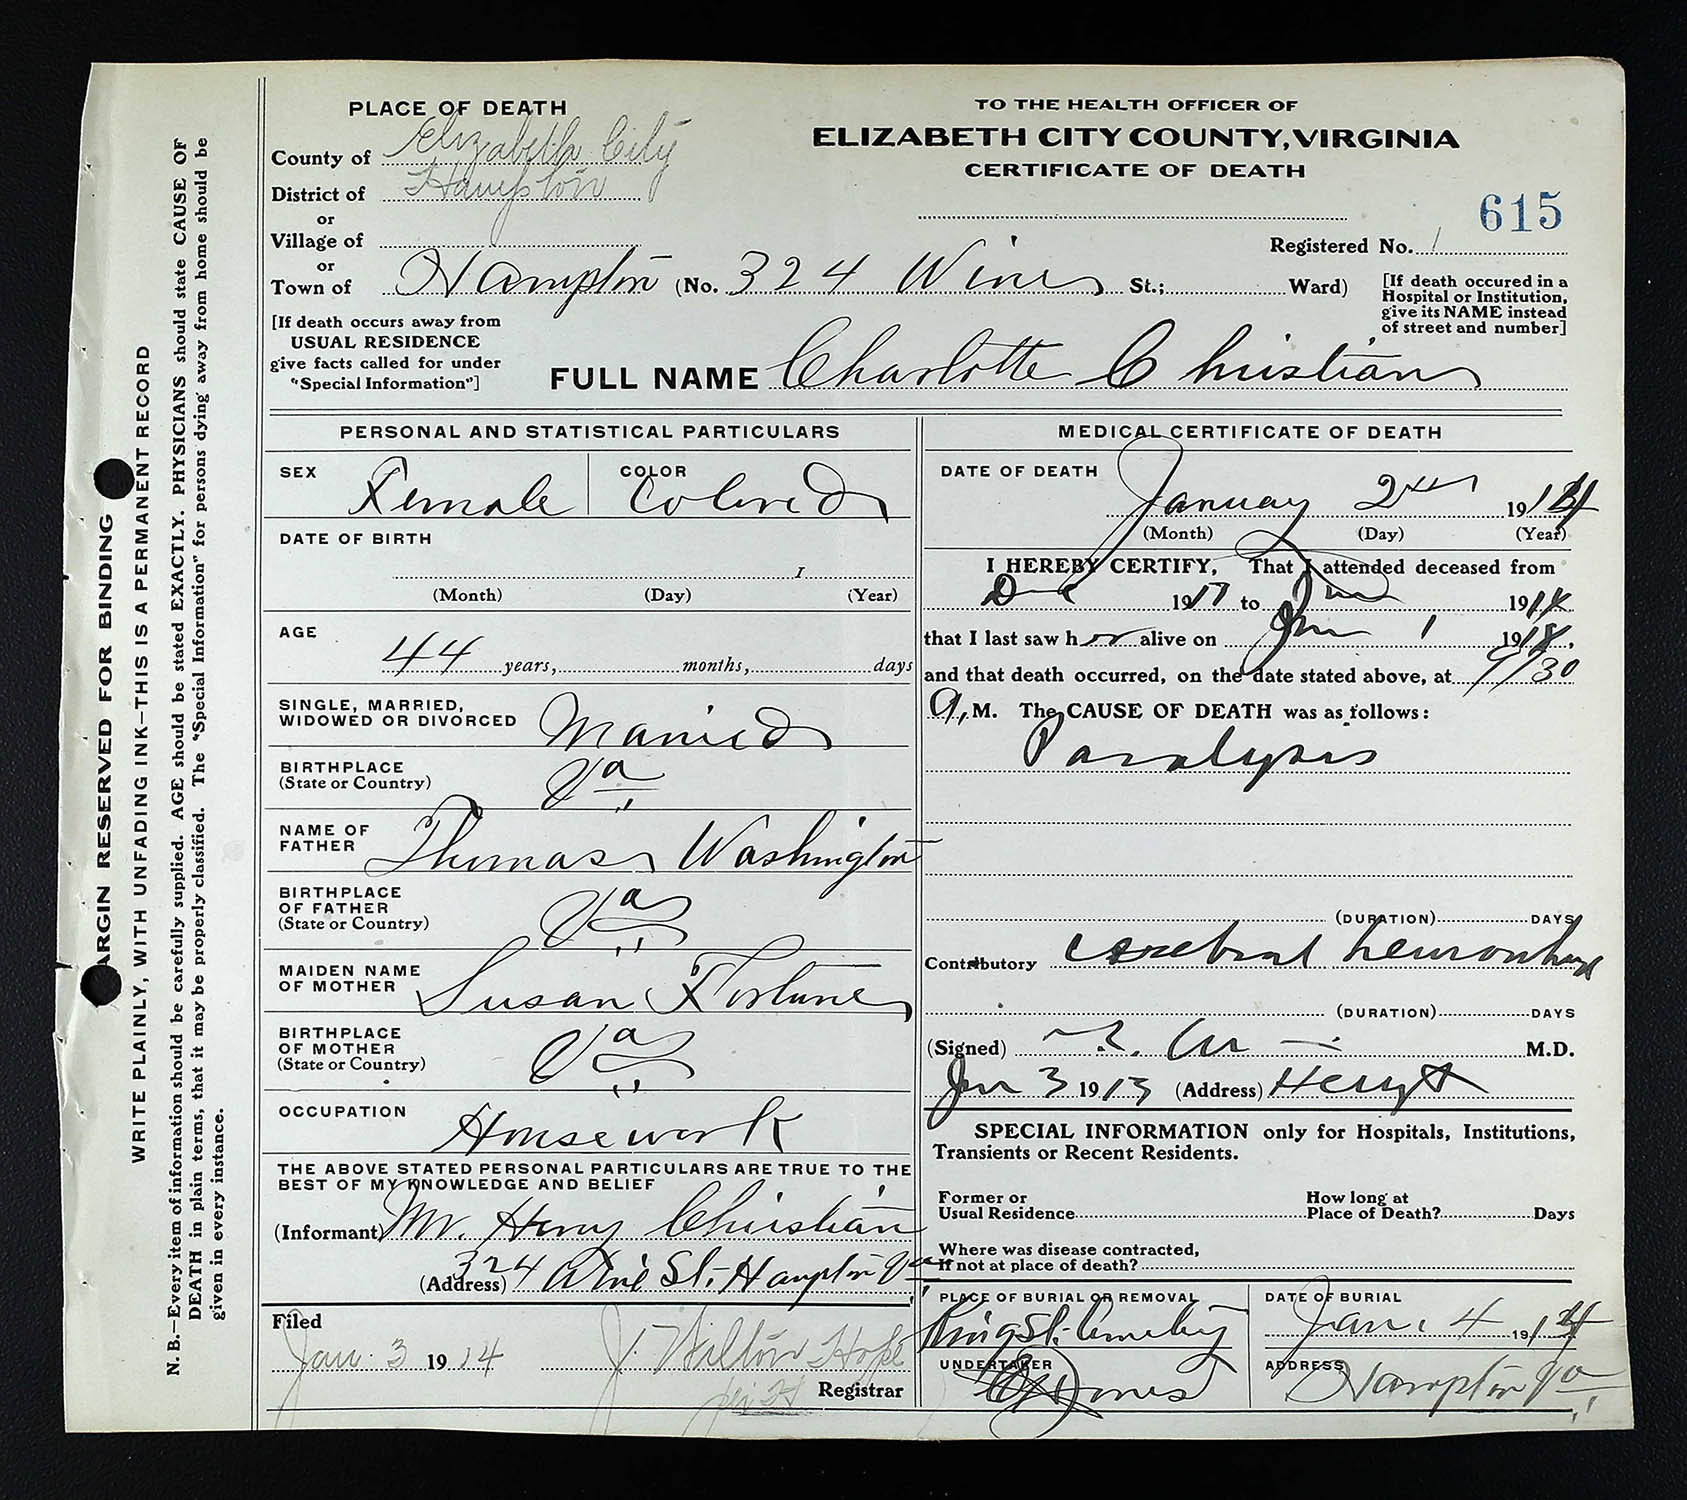 PLACE OF DEATH
County of Elizabeth City
District of Hampton
or
Village of
or
Town of Hampton (No. 324 Wine St.; Ward)
[If death occurs away from
USUAL RESIDENCE
give facts called for under
"Special Information"]
TO THE HEALTH OFFICER OF
ELIZABETH CITY COUNTY, VIRGINIA
CERTIFICATE OF DEATH
615
Registered No. 1
[If death occured in a
Hospital or Institution,
give its NAME instead
of street and number]
FULL NAME Charlotte Christian
MARGIN RESERVED FOR BINDING
WRITE PLAINLY, WITH UNFADING INK—THIS IS A PERMANENT RECORD
N. B.—Every item of information should be carefully supplied. AGE should be stated EXACTLY. PHYSICIANS should state CAUSE OF
DEATH in plain terms, that it may be properly classified. The "Special Information" for persons dying away from home should be
given in every instance.
PERSONAL AND STATISTICAL PARTICULARS
SEX Female COLOR Colored
DATE OF BIRTH
1
(Month) (Day) (Year)
AGE
44 years, months, days
SINGLE, MARRIED,
WIDOWED OR DIVORCED Married
BIRTHPLACE
(State or Country) Va
NAME OF
FATHER Thomas Washington
BIRTHPLACE
OF FATHER
(State or Country) Va
MAIDEN NAME
OF MOTHER Susan Fortune
BIRTHPLACE
OF MOTHER
(State or Country) Va
OCCUPATION
Housework
THE ABOVE STATED PERSONAL PARTICULARS ARE TRUE TO THE
BEST OF MY KNOWLEDGE AND BELIEF
(Informant) Mr. Henry Christian
(Address) 324 Wine St. Hampton Va
Filed
Jan 3 1914 J. Wilton Hope
Registrar
MEDICAL CERTIFICATE OF DEATH
DATE OF DEATH
January 2nd 1914
(Month) (Day) (Year)
I HEREBY CERTIFY, That I attended deceased from
Dec 19 to Jan 1914
that I last saw her alive on Jan 1 191
and that death occurred, on the date stated above, at 9/30
A, M. The CAUSE OF DEATH was as follows:
Paralysis
(DURATION) DAYS
Contributory Cerebral hemorrhage
(DURATION) DAYS
(Signed) M.D.
Jan 3 1913 (Address)
SPECIAL INFORMATION only for Hospitals, Institutions,
Transients or Recent Residents.
Former or
Usual Residence
How long at
Place of Death? Days
Where was disease contracted,
If not at place of death?
PLACE OF BURIAL OR REMOVAL
King St. Cemetery
DATE OF BURIAL
Jan. 4 1914
UNDERTAKER
Jones
ADDRESS
Hampton Va